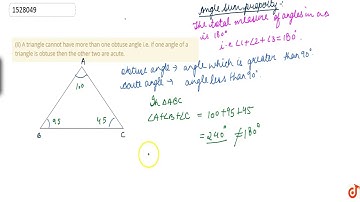 1528049
(ii) A triangle cannot have more than one obtuse angle i.e. if one angle of a
triangle is obtuse then the other two are acute.
Angle sum property:
The total measure of angles in a Δ
is 180°
i.e ∠1+∠2+∠3=180°
obtuse angle → angle which is greater than 90°
acute angle → angle less than 90°
A
100
B
95
45
C
In ΔABC
∠A+∠B+∠C = 100+95+45
= 240° ≠ 180°
doubtnut